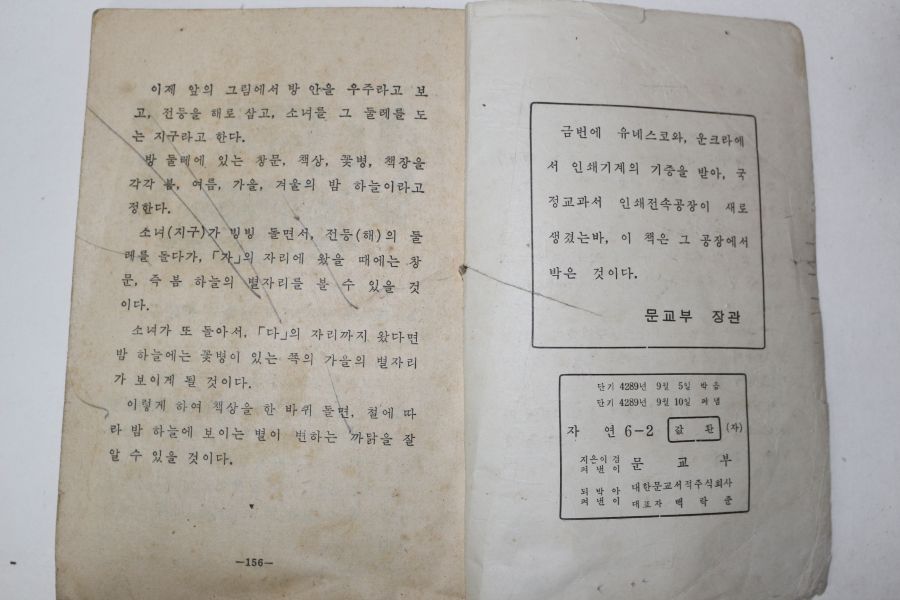 이제 앞의 그림에서 방 안을 우주라고 보
고, 전등을 해로 삼고, 소녀를 그 둘레를 도
는 지구라고 한다.
방 둘레에 있는 창문, 책상, 꽃병, 책장을
각각 봄, 여름, 가을, 겨울의 밤 하늘이라고
정한다.
소녀(지구)가 빙빙 돌면서, 전등(해)의 둘
레를 돌다가, 「가」의 자리에 왔을 때에는 창
문, 즉 봄 하늘의 별자리를 볼 수 있을 것
이다.
소녀가 또 돌아서, 「다」의 자리까지 왔다면
밤 하늘에는 꽃병이 있는 쪽의 가을의 별자리
가 보이게 될 것이다.
이렇게 하여 책상을 한 바퀴 돌면, 철에 따
라 밤 하늘에 보이는 별이 변하는 까닭을 잘
알 수 있을 것이다.
—156—
금번에 유네스코와, 운크라에
서 인쇄기계의 기증을 받아, 국
정교과서 인쇄전속공장이 새로
생겼는바, 이 책은 그 공장에서
박은 것이다.
문교부 장관
단기 4289년 9월 5일 박음
단기 4289년 9월 10일 펴냄
자 연 6-2 값 환 (자)
지은이겸
펴낸이 문 교 부
되박아
펴낸이 대한문교서적주식회사
대표자 백 락 준